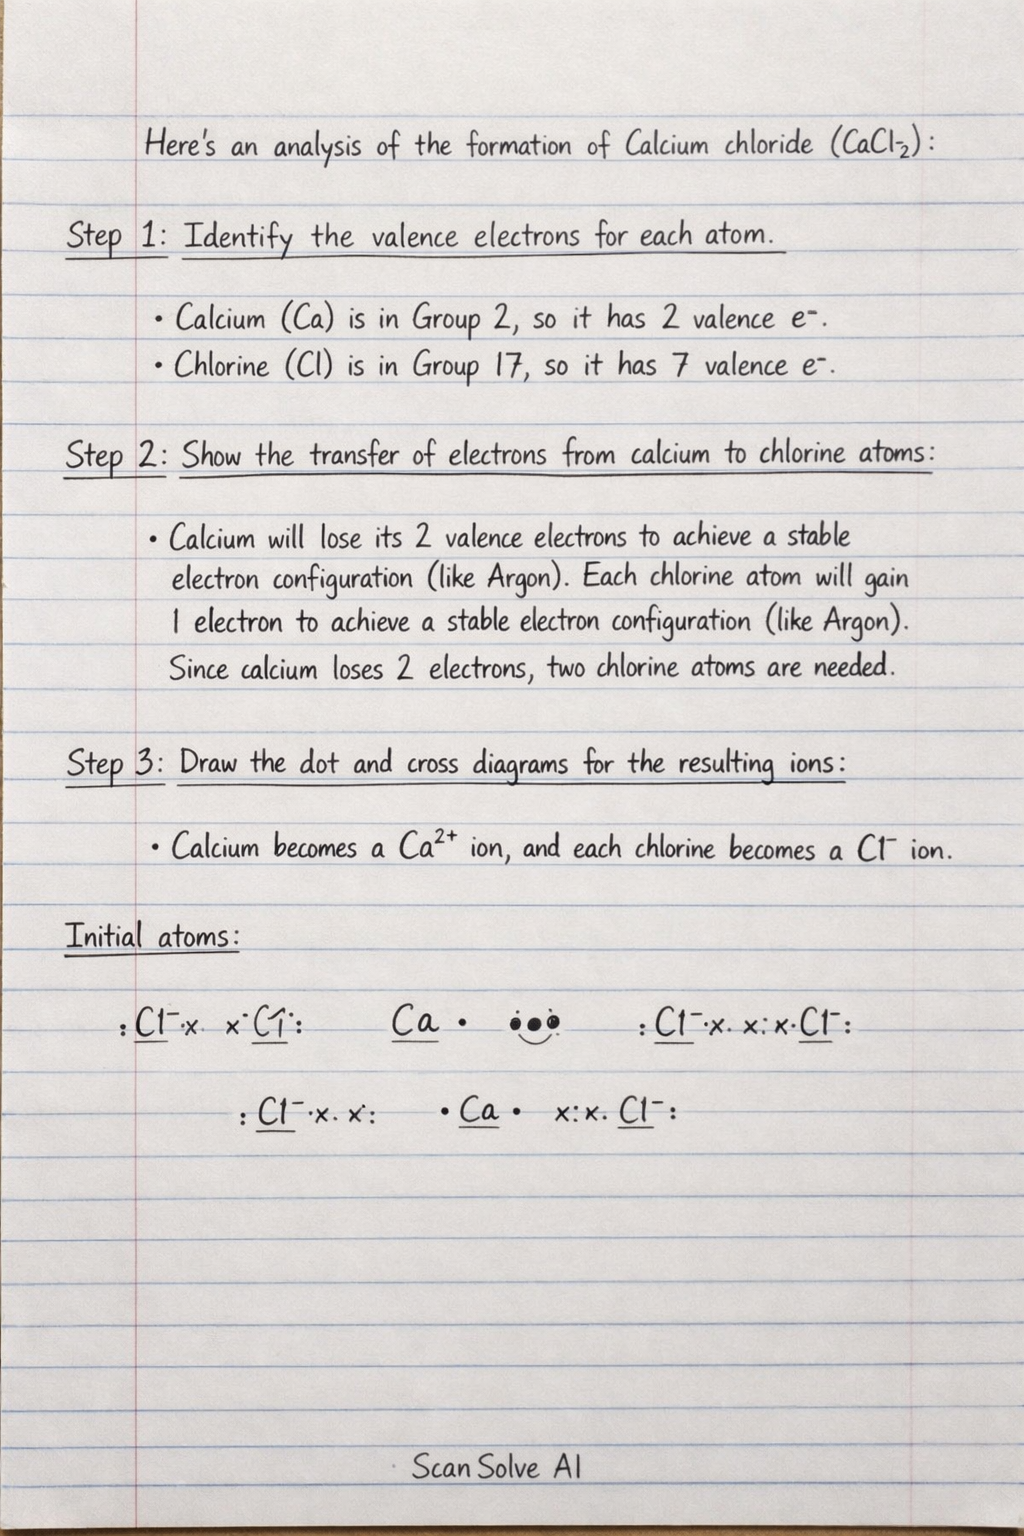 Here's an analysis of the formation of Calcium chloride (CaCl₂):
Step 1: Identify the valence electrons for each atom.
• Calcium (Ca) is in Group 2, so it has 2 valence e⁻.
• Chlorine (Cl) is in Group 17, so it has 7 valence e⁻.
Step 2: Show the transfer of electrons from calcium to chlorine atoms:
• Calcium will lose its 2 valence electrons to achieve a stable
electron configuration (like Argon). Each chlorine atom will gain
1 electron to achieve a stable electron configuration (like Argon).
Since calcium loses 2 electrons, two chlorine atoms are needed.
Step 3: Draw the dot and cross diagrams for the resulting ions:
• Calcium becomes a Ca²⁺ ion, and each chlorine becomes a Cl⁻ ion.
Initial atoms:
:Cl⁻·x x·Cl: Ca • :Cl⁻·x. x:x·Cl⁻:
:Cl⁻·x. x: •Ca• x:x. Cl⁻:
ScanSolve AI